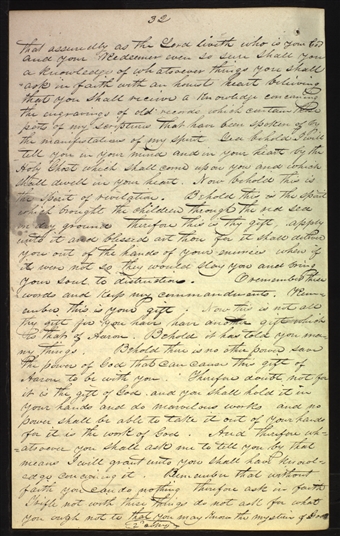 32
that assuredly as the Lord liveth who is your God
and your Redeemer even so sure shall you
a knowledge of whatsoever things you shall
ask in faith with an honest heart believing
that you shall receive a knowledge concerning
the engravings of old records which contain those
part of my scriptures that have been spoken of by
the manifestation of my spirit Yea behold I will
tell you in your mind and in your heart by the
Holy Ghost which shall come upon you and which
shall dwell in your heart. Now behold this is
the spirit of revelation. Behold this is the spirit
which brought the children through the red sea
on dry ground therefore this is thy gift, apply
unto it and blessed art thou for it shall deliver
you out of the hands of your enemies when if
it were not so they would slay you and bring
your soul to distruction. O remember these
words and keep my commandments. Rem-
ember this is your gift; Now this is not all
thy gift for you have another gift which
is that of Aaron. Behold it has told you man
ny things. Behold there is no other power save
the power of God that can cause this gift of
Aaron to be with you. Therefore doubt not for
it is the gift of God and you shall hold it in
your hands and do marvelous works and no
power shall be able to take it out of your hands
for it is the work of God. And therefore wh-
atsoever you shall ask me to tell you by that
means I will grant unto you shall have knowl-
edge concerning it. Remember that without
faith you can do nothing therefore ask in faith
Trifle not with these things do not ask for what
you ough not to that you may know the mysteries of God